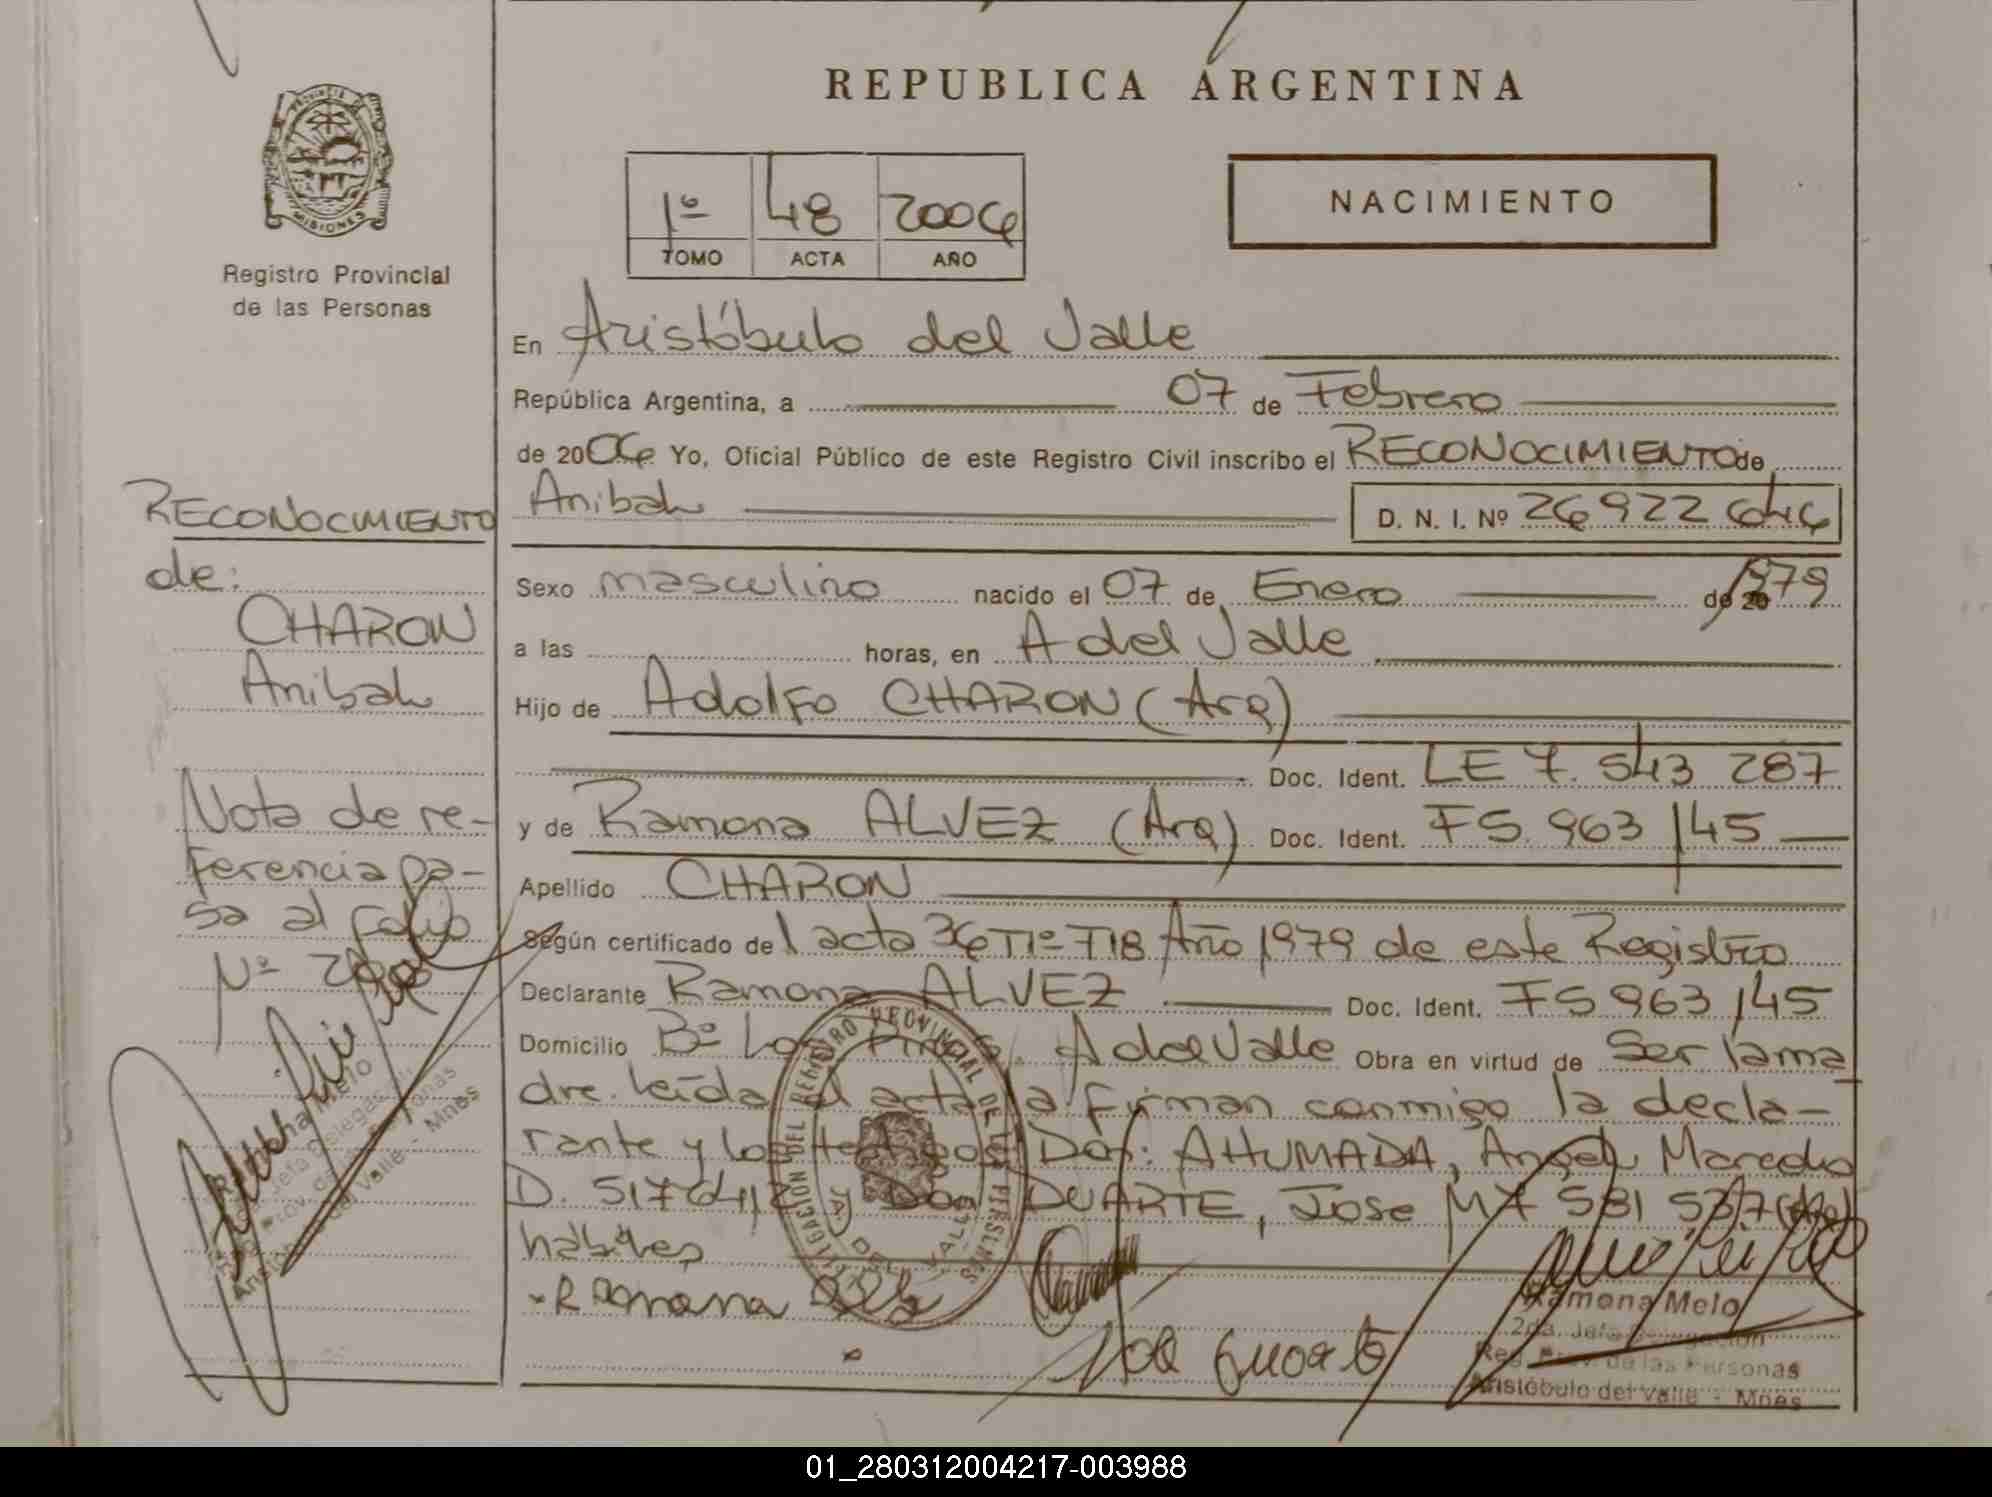 REPUBLICA ARGENTINA
PROVINCIA DE
MISIONES
Registro Provincial
de las Personas
1º 48 2006
TOMO ACTA AÑO
NACIMIENTO
En Aristóbulo del Valle
República Argentina, a 07 de Febrero
de 2006 Yo, Oficial Público de este Registro Civil inscribo el RECONOCIMIENTO de
Anibal D. N. I. Nº 26 922 646
Sexo masculino nacido el 07 de Enero de 20 1979
a las horas, en A del Valle
Hijo de Adolfo CHARON (Arg)
Doc. Ident. LE 7. 543 287
y de Ramona ALVEZ (Arg) Doc. Ident. F5. 963 145
Apellido CHARON
Según certificado del acta 36 T1º T18 Año 1979 de este Registro
Declarante Ramona ALVEZ Doc. Ident. F5 963 145
Domicilio Bº Los Pinos. A del Valle Obra en virtud de Ser la ma
dre. leída el acta la firman conmigo la decla-
rante y los testigos Don: AHUMADA, Angel Maredo
D. 5176412 y Don DUARTE, Jose M7 581 537 (Arg)
hábiles
Ramona
Ramona Melo
2da. Jefa Delegación
Reg. Prov. de las Personas
Aristóbulo del Valle - Mnes
RECONOCIMIENTO
de:
CHARON
Anibal
Nota de re-
ferencia pa-
sa al folio
Nº
Melo
Jefa Delegación
Prov. de las Personas
Aristóbulo del Valle - Mnes
DELEGACION DEL REGISTRO PROVINCIAL DE LAS PERSONAS
A. DEL VALLE
01_280312004217-003988